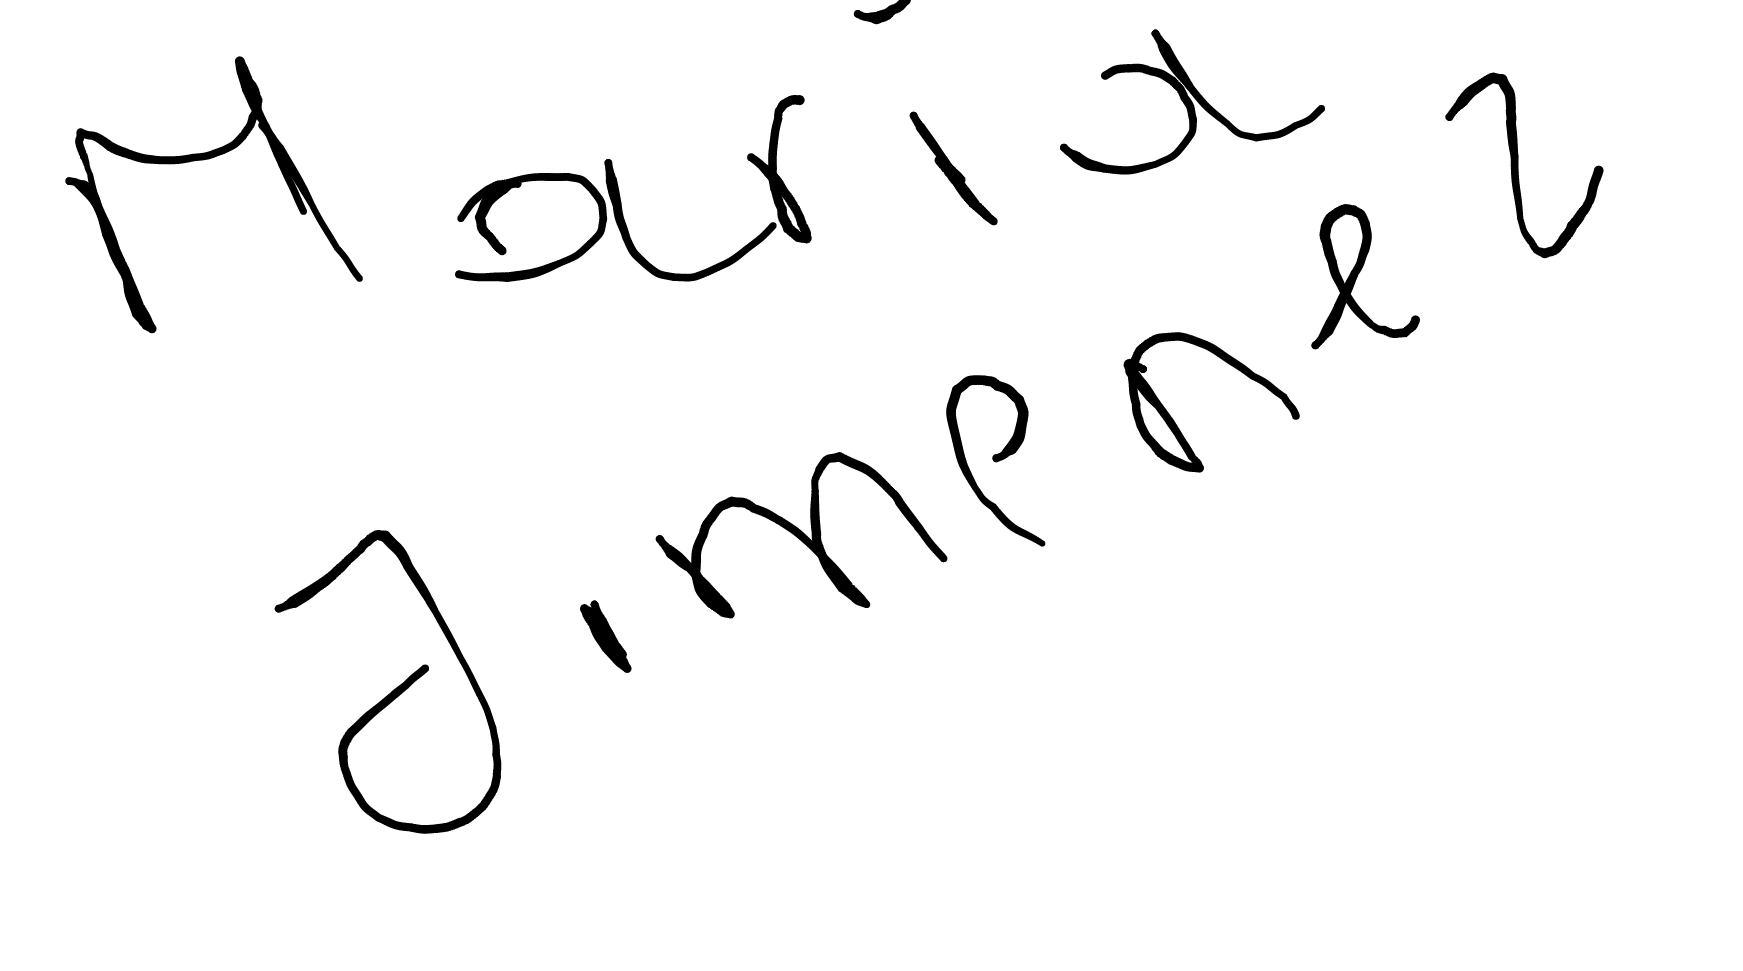 Maria
Jimenez